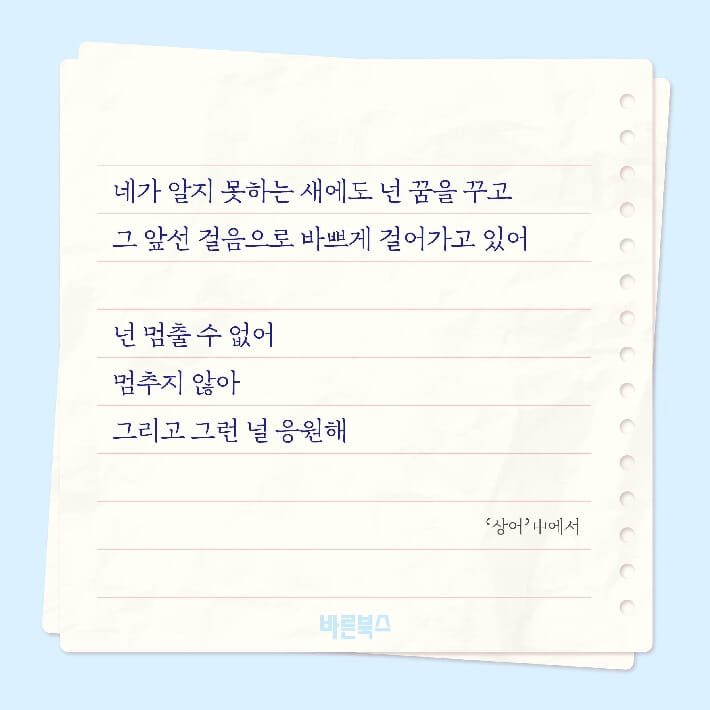 네가 알지 못하는 새에도 넌 꿈을 꾸고
그 앞선 걸음으로 바쁘게 걸어가고 있어
넌 멈출 수 없어
멈추지 않아
그리고 그런 널 응원해
‘상어’ 中에서
바른북스